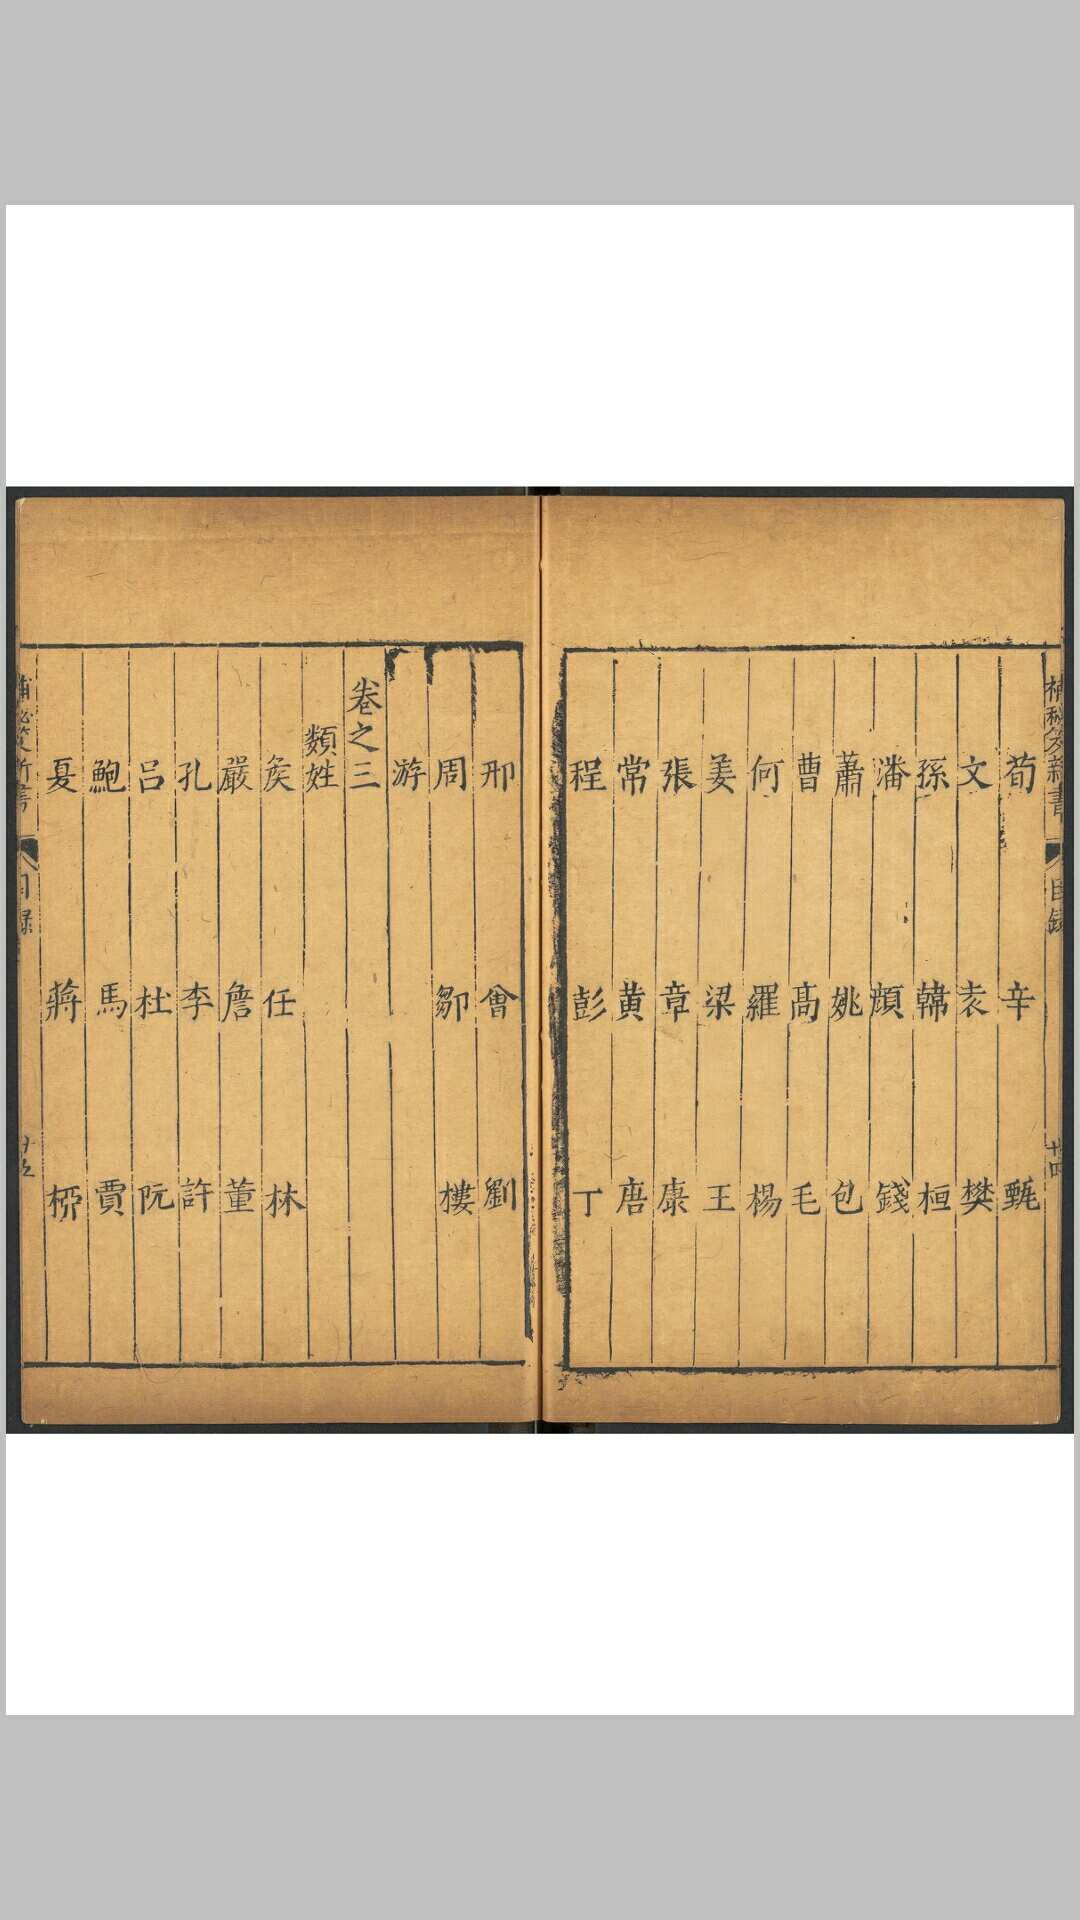 補秘笈新書
目錄
十四
荀 辛 甄
文 袁 樊
孫 韓 桓
潘 顏 錢
蕭 姚 包
曹 高 毛
何 羅 楊
姜 梁 王
張 章 康
常 黄 唐
程 彭 丁
邢 曾 劉
周 鄒 樓
游
卷之三
類姓
侯 任 林
嚴 詹 董
孔 李 許
吕 杜 阮
鮑 馬 賈
夏 蔣 柳
補秘笈新書
目錄
十五